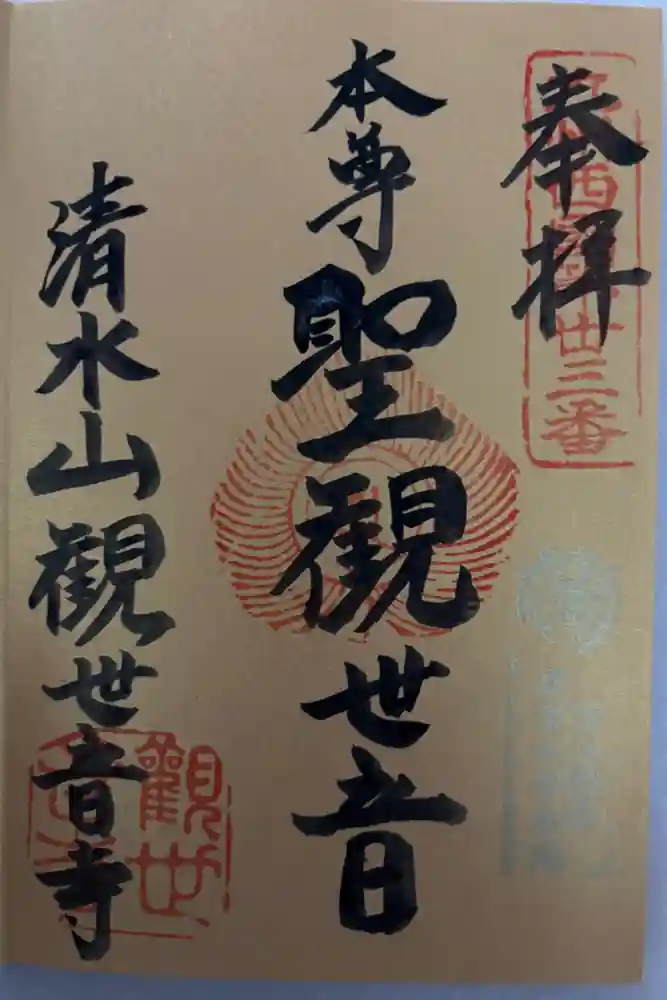 奉拝
卅三番
本尊聖觀世音
清水山觀世音寺
觀世